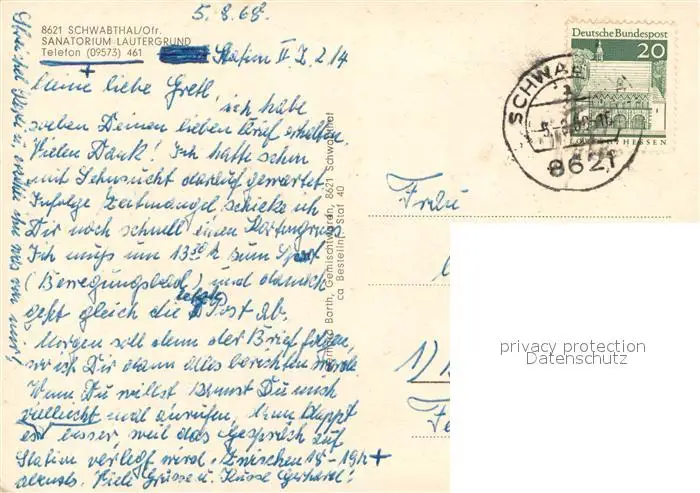 5.8.68.
8621 SCHWABTHAL/Ofr.
SANATORIUM LAUTERGRUND
Telefon (09573) 461
Station II Z. 214
Meine liebe Gretl
ich habe
soeben Deinen lieben Brief erhalten.
Vielen Dank! Ich hatte schon
mit Sehnsucht darauf gewartet.
Infolge Zeitmangel schicke ich
Dir noch schnell einen Kartengruss.
Ich muss um 13 30 h zum
(Bewegungsbad) und danach
geht gleich die letzte Post ab.
Morgen soll dann der Brief folgen,
wo ich Dir dann alles berichten werde.
Wenn Du willst kannst Du mich
vielleicht mal anrufen, dann klappt
es besser, weil das Gespräch auf
Station verlegt wird. Zwischen 18-19h +
abends. Viele Grüsse u. Küsse Gerhard!
Barth, Gemischtwaren, 8621 Schwabthal
ca Bestellnr. Staf 40
Deutsche Bundespost
20
HESSEN
8621
Frau
1)
privacy protection
Datenschutz